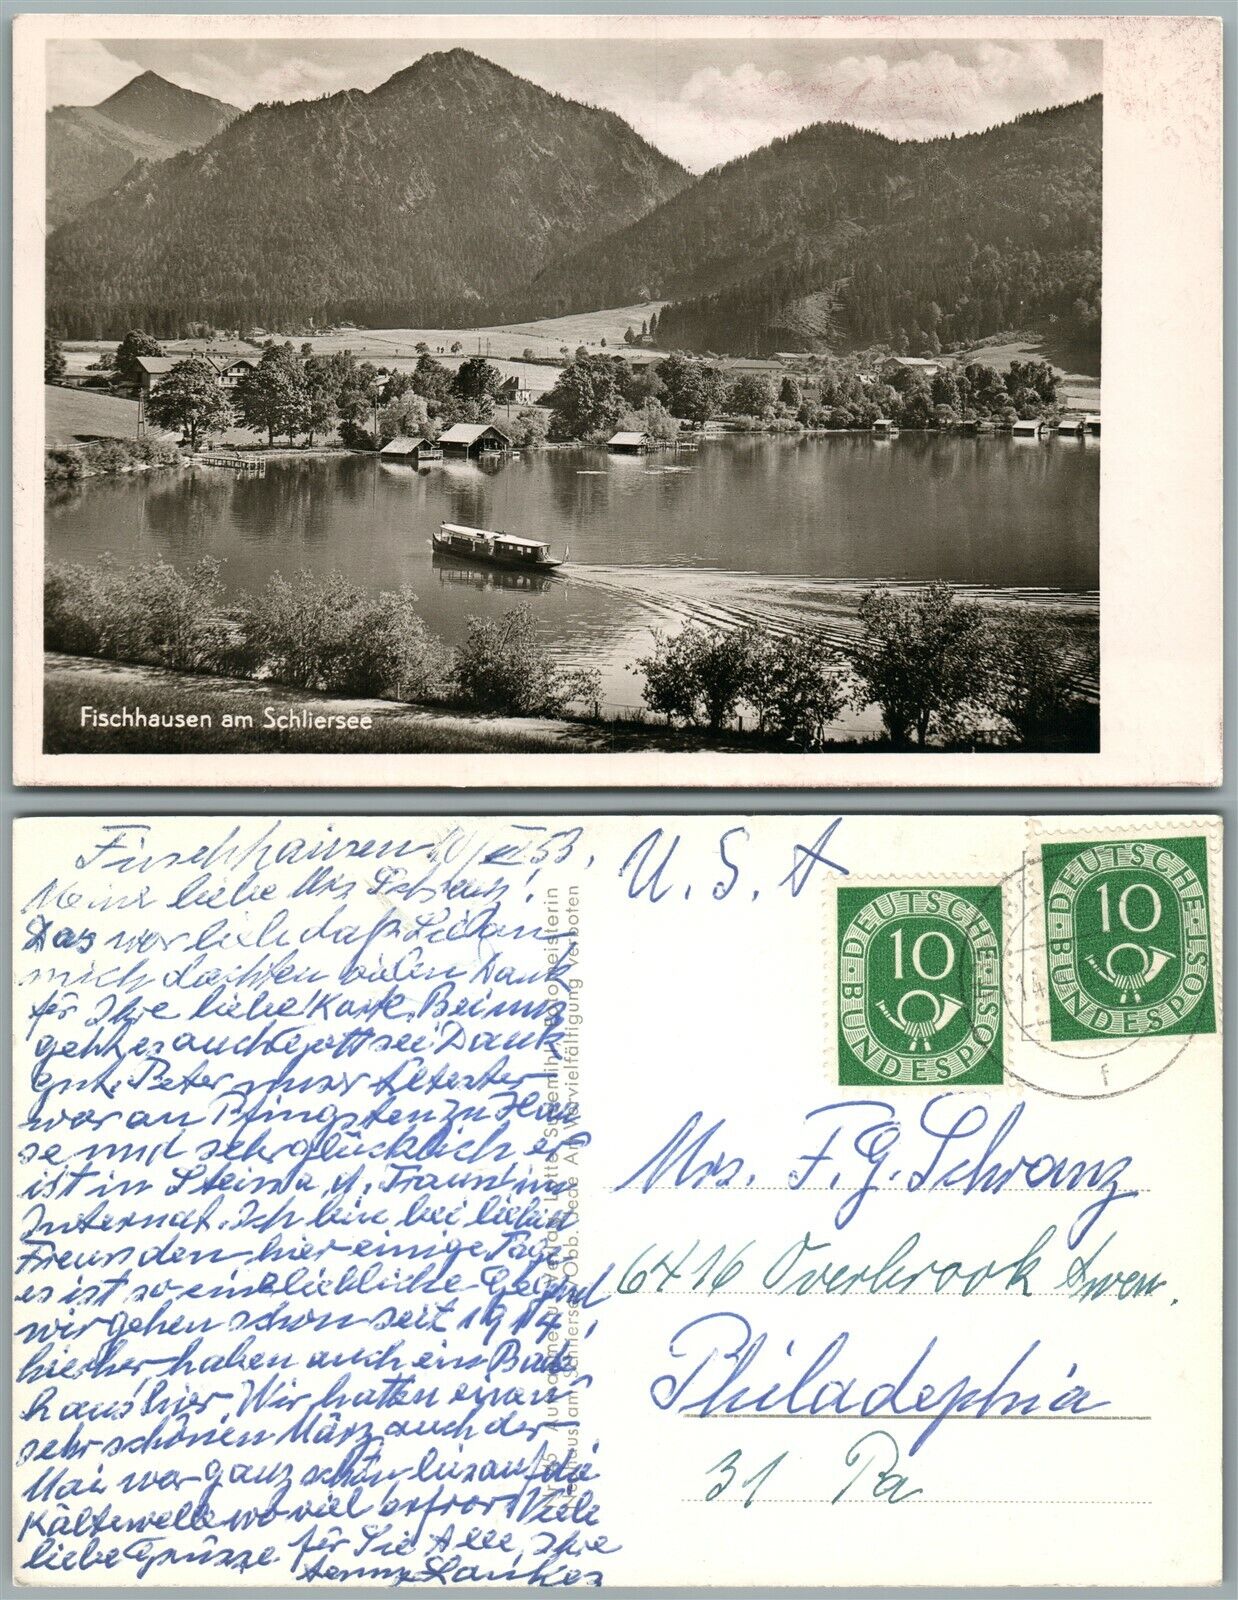 Fischhausen am Schliersee
Fischhausen 10/VI 53.
Meine liebe Mrs Schranz!
Das war lieb daß Sie an
mich dachten vielen Dank
für Ihre liebe Karte. Bei uns
geht es auch Gott sei Dank
gut. Peter unser Ältester
war an Pfingsten zu Hau
se und sehr glücklich er
ist in Stein a. d. Traun im
Internat. Ich bin bei lieben
Freunden hier einige Tage
es ist so eine liebliche Gegend
wir gehen schon seit 1914
hierher haben auch ein Bade
haus hier. Wir hatten einen
sehr schönen März auch der
Mai war ganz schön bis auf die
Kältewelle wo viel erfror. Viele
liebe Grüsse für Sie Alle, Ihre
Aufnahme u.
Neuhaus am Schliersee/Obb. Jede Art Vervielfältigung verboten
U. S. A
DEUTSCHE BUNDESPOST
10
DEUTSCHE BUNDESPOST
10
14
f
Mrs. F. G. Schranz
6416 Overbrook Aven.
Philadephia
31 Pa